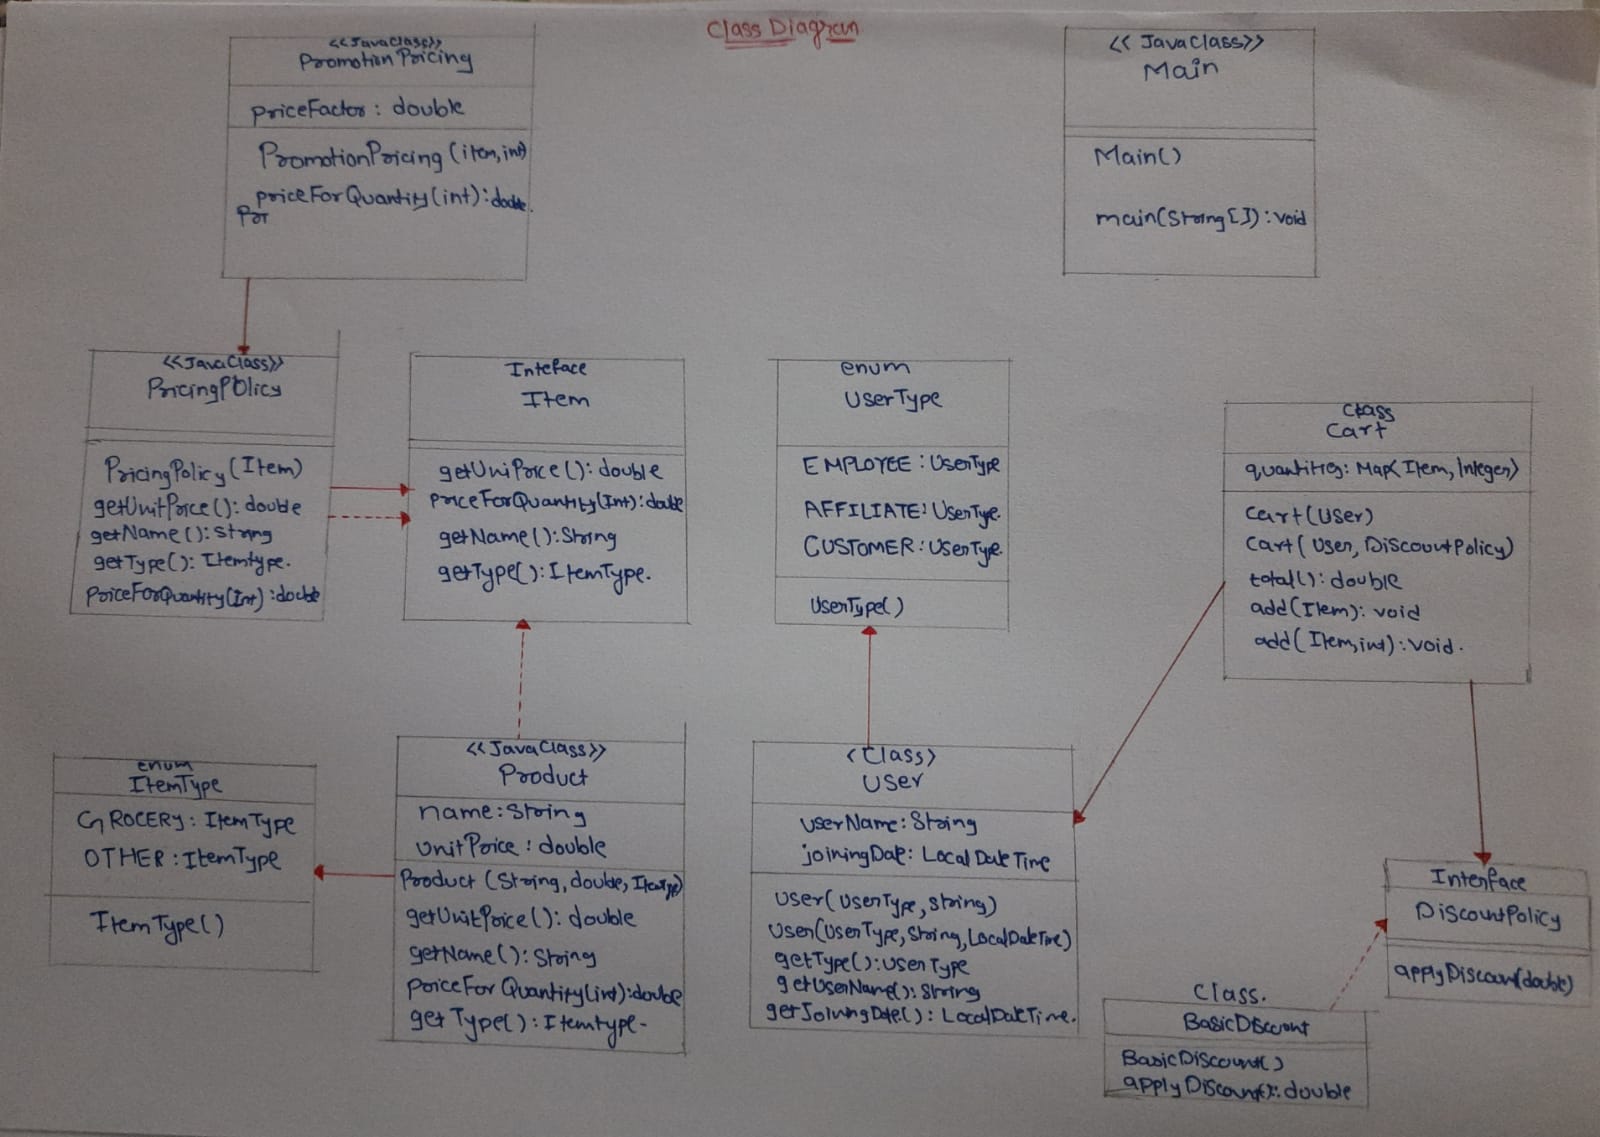 Class Diagran
<<JavaClass>>
Promotion Pricing
priceFactor : double
PromotionPricing (item,int)
priceForQuantity(int):double.
For
<< JavaClass>>
Main
Main()
main(String[]) : void
<<JavaClass>>
PricingPolicy
PricingPolicy (Item)
getUnitPrice(): double
getName(): String
getType(): Itemtype.
priceForQuantity(Int) :double
Inteface
Item
getUniPrice(): double
priceForQuantity(Int): double
getName():String
getType():ItemType.
enum
UserType
EMPLOYEE : UserType
AFFILIATE: UserType.
CUSTOMER : UserType.
UserType()
Class
Cart
quantities: Map<Item, Integer>
Cart(User)
Cart( User, DiscountPolicy)
total(): double
add(Item): void
add( Item,int): void.
enum
ItemType
GROCERY: ItemType
OTHER : ItemType
ItemType()
<<JavaClass>>
Product
name: String
unitPrice : double
Product (String, double, ItemType)
getUnitPrice(): double
getName(): String
priceFor Quantity(int):double
getType(): Itemtype-
<Class>
User
userName: String
joiningDate: LocalDateTime
User( UserType, String)
User(UserType, String, LocalDateTime)
getType():UserType
getUserName(): String
getJoiningDate.(): LocalDateTime.
Interface
DiscountPolicy
applyDiscount(double)
Class.
BasicDiscount
BasicDiscount()
applyDiscount(): double